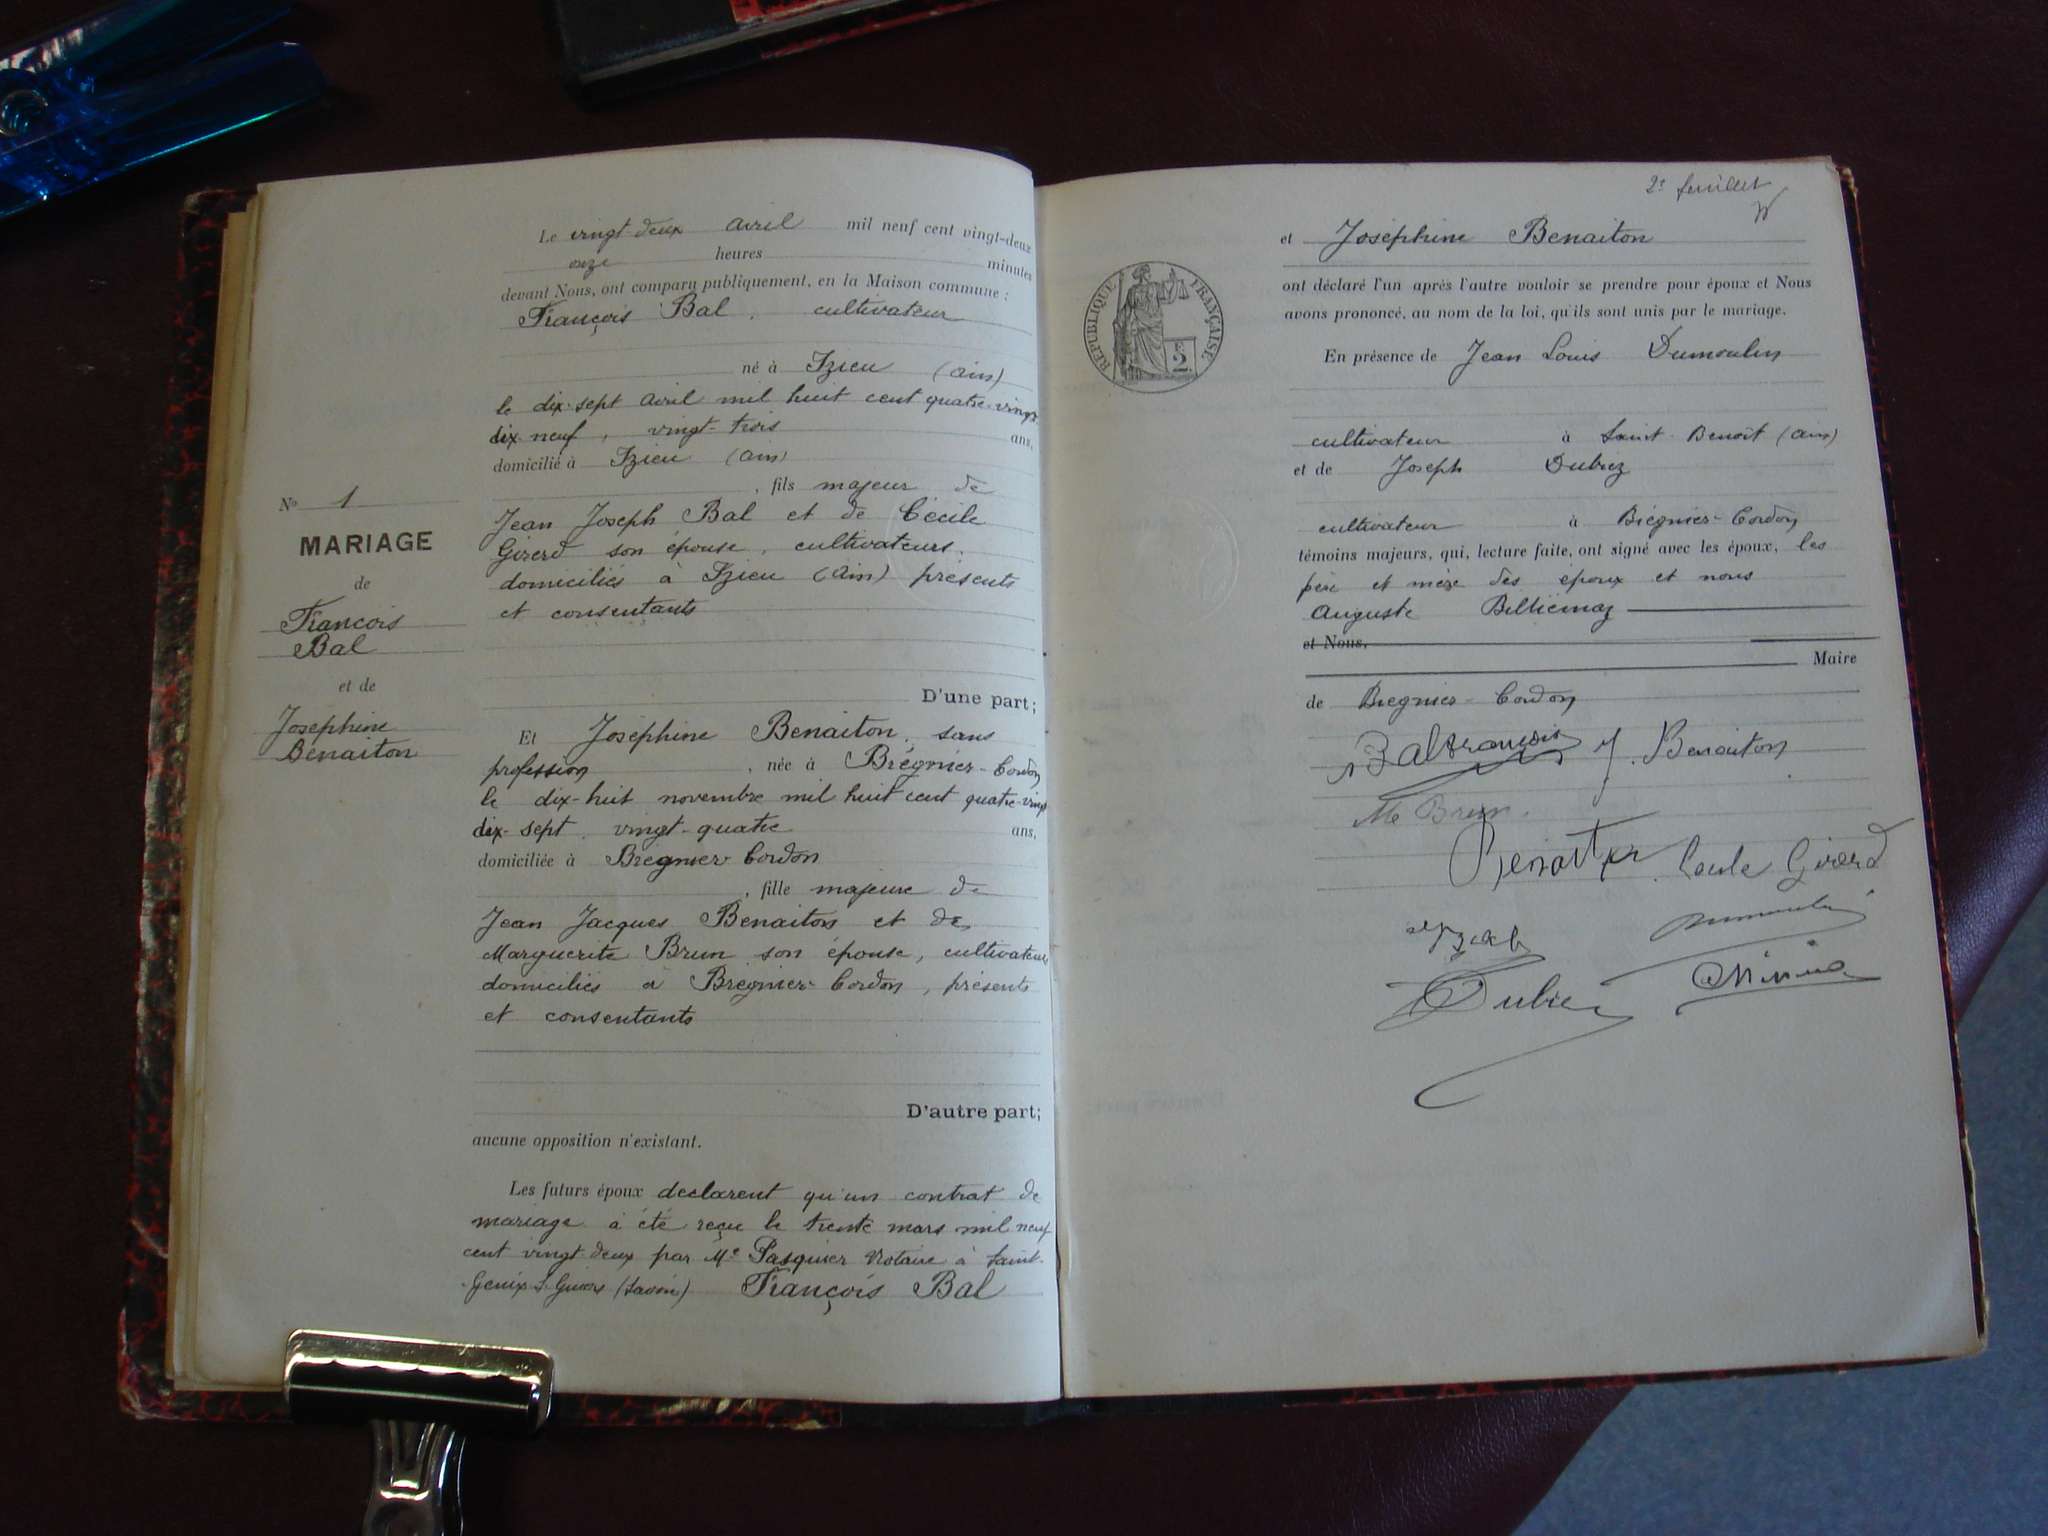 Le vingt deux avril mil neuf cent vingt-deux
onze heures minutes
devant Nous, ont comparu publiquement, en la Maison commune :
François Bal, cultivateur
né à Izieu (Ain)
le dix-sept avril mil huit cent quatre-vingt
dix neuf, vingt-trois ans,
domicilié à Izieu (Ain)
, fils majeur de
Jean Joseph Bal et de Cécile
Girerd son épouse, cultivateurs,
domiciliés à Izieu (Ain) présents
et consentants
D'une part;
Nº 1
MARIAGE
de
François
Bal
et de
Joséphine
Benaiton
Et Joséphine Benaiton, sans
profession, née à Brégnier-Cordon
le dix-huit novembre mil huit cent quatre-vingt
dix-sept, vingt-quatre ans,
domiciliée à Brégnier-Cordon
, fille majeure de
Jean Jacques Benaiton et de
Marguerite Brun son épouse, cultivateurs
domiciliés à Brégnier-Cordon, présents
et consentants
D'autre part;
aucune opposition n'existant.
Les futurs époux declarent qu'un contrat de
mariage a été reçu le trente mars mil neuf
cent vingt-deux par Me Pasquier Notaire à Saint-
Genix S. Guiers (Savoie) François Bal
2e feuillet
et Joséphine Benaiton
ont déclaré l'un après l'autre vouloir se prendre pour époux et Nous
avons prononcé, au nom de la loi, qu'ils sont unis par le mariage.
RÉPUBLIQUE FRANÇAISE
2
En présence de Jean Louis Dumoulin
cultivateur à Saint-Benoit (Ain)
et de Joseph Dubiez
cultivateur à Brégnier-Cordon
témoins majeurs, qui, lecture faite, ont signé avec les époux, les
père et mère des époux et nous
Auguste Billiemaz
et Nous,
Maire
de Brégnier-Cordon
Bal François J. Benaiton
Me Brun.
Benaiton Cecile Girerd
Dumoulin
Dubiez